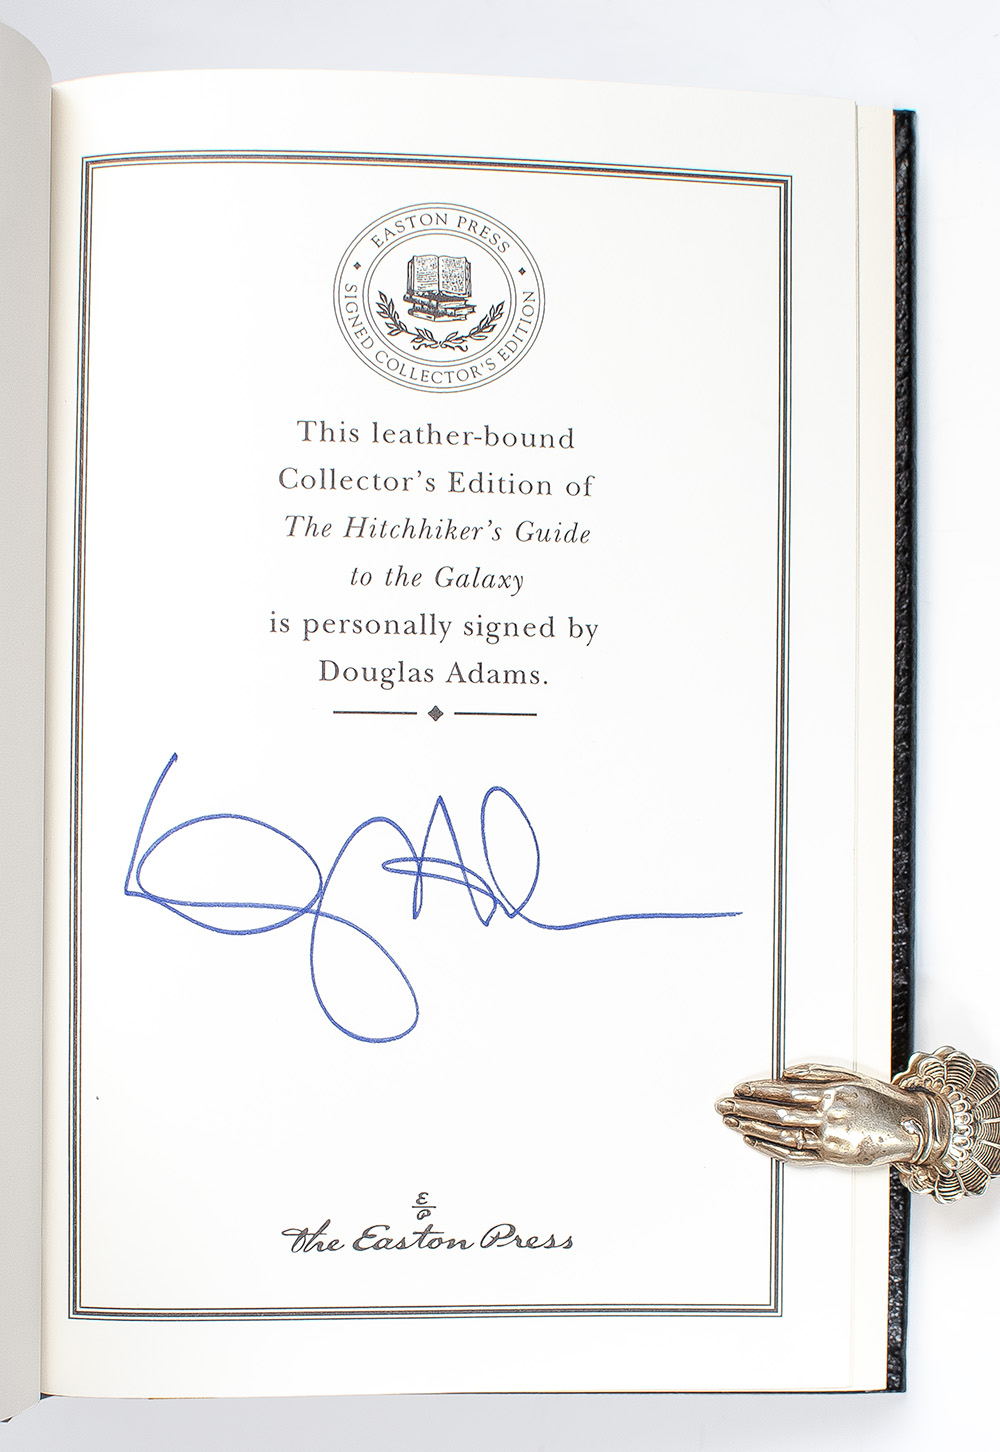 EASTON PRESS
SIGNED COLLECTOR'S EDITION
This leather-bound
Collector's Edition of
The Hitchhiker's Guide
to the Galaxy
is personally signed by
Douglas Adams.
E
P
The Easton Press